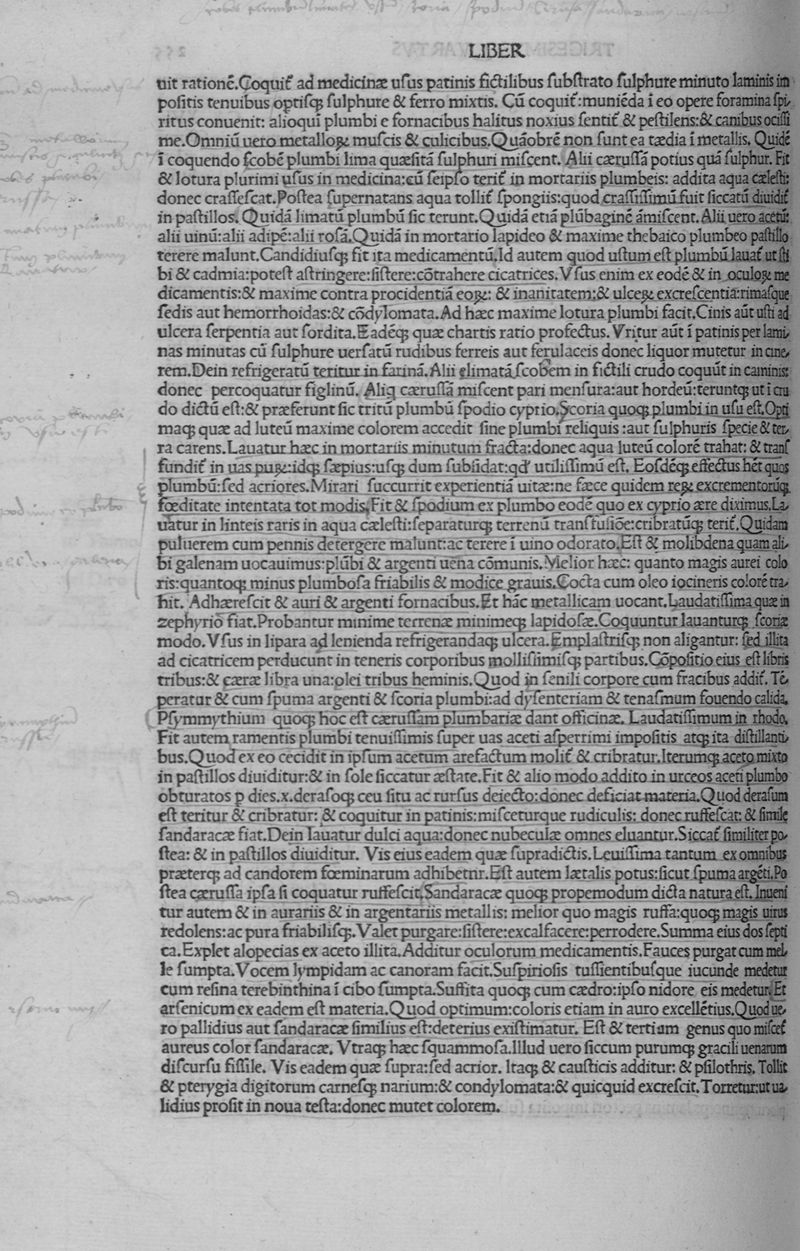 LIBER
uit rationē.Coquit᷑ ad medicinæ usus patinis fictilibus substrato sulphure minuto laminis im
positis tenuibus optisq; sulphure & ferro mixtis. Cū coquit᷑:muniēda i eo opere foramina spi,
ritus conuenit: alioqui plumbi e fornacibus halitus noxius sentit᷑ & pestilens:& canibus ocissi
me.Omniū uero metalloꝝ muscis & culicibus.Quāobrē non sunt ea tædia ī metallis. Quidē
ī coquendo scobē plumbi lima quæsitā sulphuri miscent. Alii cærussā potius quā sulphur. Fit
& lotura plurimi usus in medicina:cū seipso terit᷑ in mortariis plumbeis: addita aqua cælesti:
donec crassescat.Postea supernatans aqua tollit᷑ spongiis:quod crassissimū fuit siccatū diuidit᷑
in pastillos. Quidā limatū plumbū sic terunt.Quidā etiā plūbaginē āmiscent.Alii uero acetū:
alii uinū:alii adipē:alii rosā.Quidā in mortario lapideo & maxime thebaico plumbeo pastillo
terere malunt.Candidiusq; fit ita medicamentū.Id autem quod ustum est plumbū lauat᷑ ut sti
bi & cadmia:potest astringere:sistere:cōtrahere cicatrices.Vsus enim ex eodē & in oculoꝝ me
dicamentis:& maxime contra procidentiā eoꝝ: & inanitatem:& ulceꝝ excrescentia:rimasque
sedis aut hemorrhoidas:& cōdylomata.Ad hæc maxime lotura plumbi facit.Cinis aūt usti ad
ulcera serpentia aut sordita.Eadēq; quæ chartis ratio profectus. Vritur aūt ī patinis per lami,
nas minutas cū sulphure uersatū rudibus ferreis aut ferulaceis donec liquor mutetur in cine,
rem.Dein refrigeratū teritur in farinā.Alii elimatā scobem in fictili crudo coquūt in caminis:
donec percoquatur figlinū. Aliq cærussā miscent pari mensura:aut hordeū:teruntq; ut i cru
do dictū est:& præferunt sic tritū plumbū spodio cyprio.Scoria quoq; plumbi in usu est.Opti
maq; quæ ad luteū maxime colorem accedit sine plumbi reliquis :aut sulphuris specie & ter,
ra carens.Lauatur hæc in mortariis minutum fracta:donec aqua luteū colorē trahat: & transf
fundit᷑ in uas puꝝ:idq; sæpius:usq; dum subsidat:qd' utilissimū est. Eosdēq; effectus hēt quos
plumbū:sed acriores.Mirari succurrit experientiā uitæ:ne fæce quidem reꝝ excrementorūq;
fœditate intentata tot modis.Fit & spodium ex plumbo eodē quo ex cyprio ære diximus.La,
uatur in linteis raris in aqua cælesti:separaturq; terrenū transfusiōe:cribratūq; terit᷑.Quidam
puluerem cum pennis detergere malunt:ac terere ī uino odorato.Est & molibdena quam ali,
bi galenam uocauimus:plūbi & argenti uena cōmunis.Melior hæc: quanto magis aurei colo
ris:quantoq; minus plumbosa friabilis & modice grauis.Cocta cum oleo iocineris colorē tra,
hit. Adhærescit & auri & argenti fornacibus.Et hāc metallicam uocant.Laudatissima quæ in
zephyrio fiat.Probantur minime terrenæ minimeq; lapidosæ.Coquuntur lauanturq; scoriæ
modo.Vsus in lipara ad lenienda refrigerandaq; ulcera.Emplastrisq; non aligantur: sed illita
ad cicatricem perducunt in teneris corporibus mollissimisq; partibus.Cōpositio eius est libris
tribus:& cæræ libra una:olei tribus heminis.Quod in senili corpore cum fracibus addit᷑. Tē,
peratur & cum spuma argenti & scoria plumbi:ad dysenteriam & tenasmum fouendo calida.
Psymmythium quoq; hoc est cærussam plumbariæ dant officinæ. Laudatissimum in rhodo.
Fit autem ramentis plumbi tenuissimis super uas aceti asperrimi impositis atq; ita distillanti,
bus.Quod ex eo cecidit in ipsum acetum arefactum molit᷑ & cribratur.Iterumq; aceto mixto
in pastillos diuiditur:& in sole siccatur æstate.Fit & alio modo addito in urceos aceti plumbo
obturatos p dies.x.derasoq; ceu situ ac rursus deiecto:donec deficiat materia.Quod derasum
est teritur & cribratur: & coquitur in patinis:misceturque rudiculis: donec ruffescat: & simile
sandaracæ fiat.Dein lauatur dulci aqua:donec nubeculæ omnes eluantur.Siccat᷑ similiter po,
stea: & in pastillos diuiditur. Vis eius eadem quæ supradictis.Leuissima tantum ex omnibus
præterq; ad candorem fœminarum adhibetnr.Est autem lætalis potus:sicut spuma argēti.Po
stea cærussa ipsa si coquatur ruffescit.Sandaracæ quoq; propemodum dicta natura est.Inueni
tur autem & in aurariis & in argentariis metallis: melior quo magis ruffa:quoq; magis uirus
redolens:ac pura friabilisq;.Valet purgare:sistere:excalfacere:perrodere.Summa eius dos septi
ca.Explet alopecias ex aceto illita.Additur oculorum medicamentis.Fauces purgat cum mel,
le sumpta.Vocem lympidam ac canoram facit.Suspiriosis tussientibusque iucunde medetur
cum resina terebinthina ī cibo sumpta.Suffita quoq; cum cædro:ipso nidore eis medetur.Et
arsenicum ex eadem est materia.Quod optimum:coloris etiam in auro excellētius.Quod ue,
ro pallidius aut sandaracæ similius est:deterius existimatur. Est & tertium genus quo miscet᷑
aureus color sandaracæ. Vtraq; hæc squammosa.Illud uero siccum purumq; gracili uenarum
discursu fissile. Vis eadem quæ supra:sed acrior. Itaq; & causticis additur: & psilothris. Tollit
& pterygia digitorum carnesq; narium:& condylomata:& quicquid excrescit.Torretur:ut ua,
lidius prosit in noua testa:donec mutet colorem.